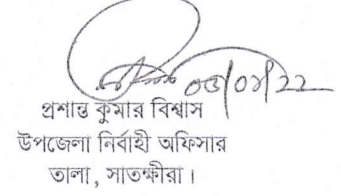 প্রশান্ত কুমার বিশ্বাস
উপজেলা নির্বাহী অফিসার
তালা, সাতক্ষীরা।